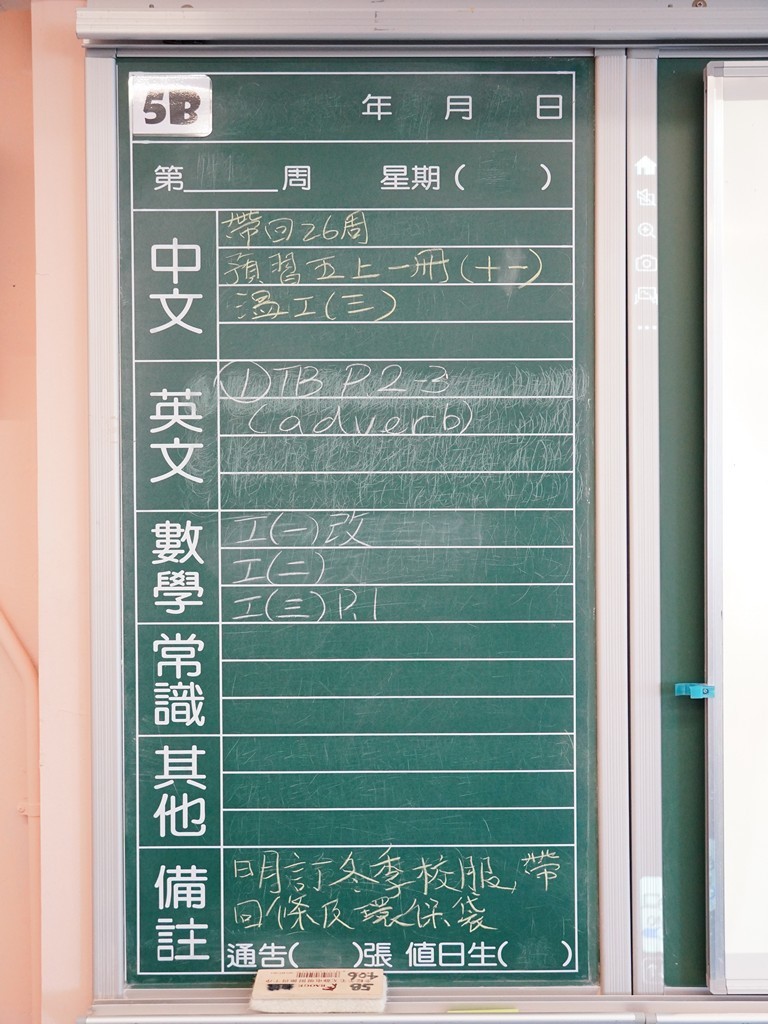 5B 年 月 日
第 周 星期( )
中文
帶回26周
預習五上一冊(十一)
溫工(三)
英文
①TB P.2-3
(adverb)
數學
工(一)改
工(二)
工(三)P.1
常識
其他
備註
明訂冬季校服,帶
回條及環保袋
通告( )張 值日生( )
5B
406